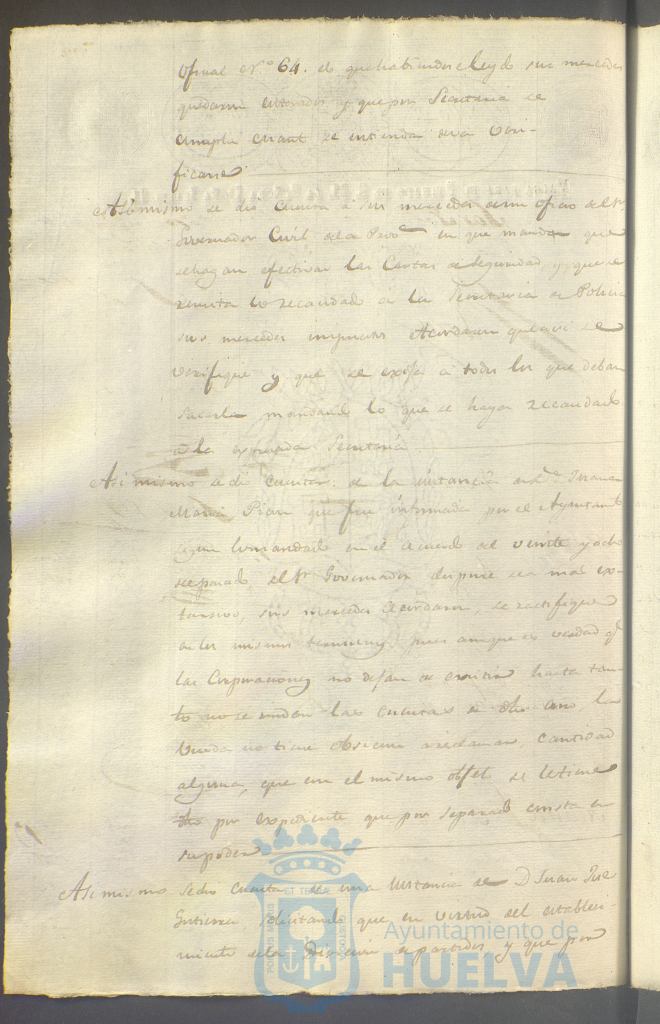 oficial Nº 64. de que habiendose leydo sus mercedes
quedaron enterados y que por Secretaria se
cumpla cuant se entienda deva veri-
ficarse
Asimismo se dio cuenta á sus mercedes de un oficio del Sr
Governador Civil dela Prova en que manda que
se hagan efectivas las Cartas de Seguridad y que se
remita lo recaudado á la Secretaria de Policia
sus mercedes Acordaron que asi se
verifique y que se exija á todos los que deban
sacarla mandando lo que se haya recaudado
a la expresada Secretaria
Asimismo se dio cuenta de la instancia de
Maria que fue informada por el Ayuntamto
segun lo mandado en el acuerdo del veinte y ocho
del pasado, el Sr Governador dispone sea mas ex-
tensivo, sus mercedes Acordaron, se rectifique
en los mismos terminos, pues aunque es verdad qe
las Corporaciones no dejan de existir hasta tan-
to no se rinden las cuentas de dho año, la
Viuda no tiene que reclamar, cantidad
alguna, que en el mismo se le tiene
dho por expediente que por separado consta en
su poder
Asimismo se dio cuenta de una Instancia de D Juan José
Gutierrez, solicitando que en virtud del estableci-
miento dela Division de partidos, y que por
PORTUS MARIS
ET TERRAE
CUSTODIA
Ayuntamiento de
HUELVA